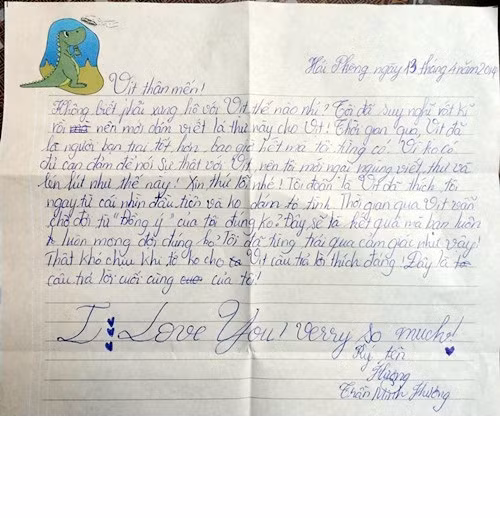 Hải Phòng, ngày 13 tháng 4 năm 2014
Vịt thân mến!
Không biết phải xưng hô với Vịt thế nào nhỉ? Tôi đã suy nghĩ rất kĩ
rồi nên mới dám viết lá thư này cho Vịt! Thời gian qua, Vịt đã
là người bạn trai tốt hơn bao giờ hết mà tôi từng có. Vì ko có
đủ can đảm để nói sự thật với Vịt, nên tôi mới ngại ngùng viết thư và
lén lút như thế này! Xin thứ lỗi nhé! Tôi đoán là Vịt đã thích tôi
ngay từ cái nhìn đầu tiên và ko dám tỏ tình. Thời gian qua Vịt vẫn
chờ đợi từ "Đồng ý" của tôi đúng ko? Đây sẽ là kết quả mà bạn luôn
luôn mong đợi đúng ko? Tôi đã từng trải qua cảm giác như vậy!
Thật khó chịu khi tớ ko cho Vịt câu trả lời thích đáng! Đây là
câu trả lời cuối cùng của tôi!
I Love You! Verry so much!
Ký tên
Hương
Trần Minh Hương